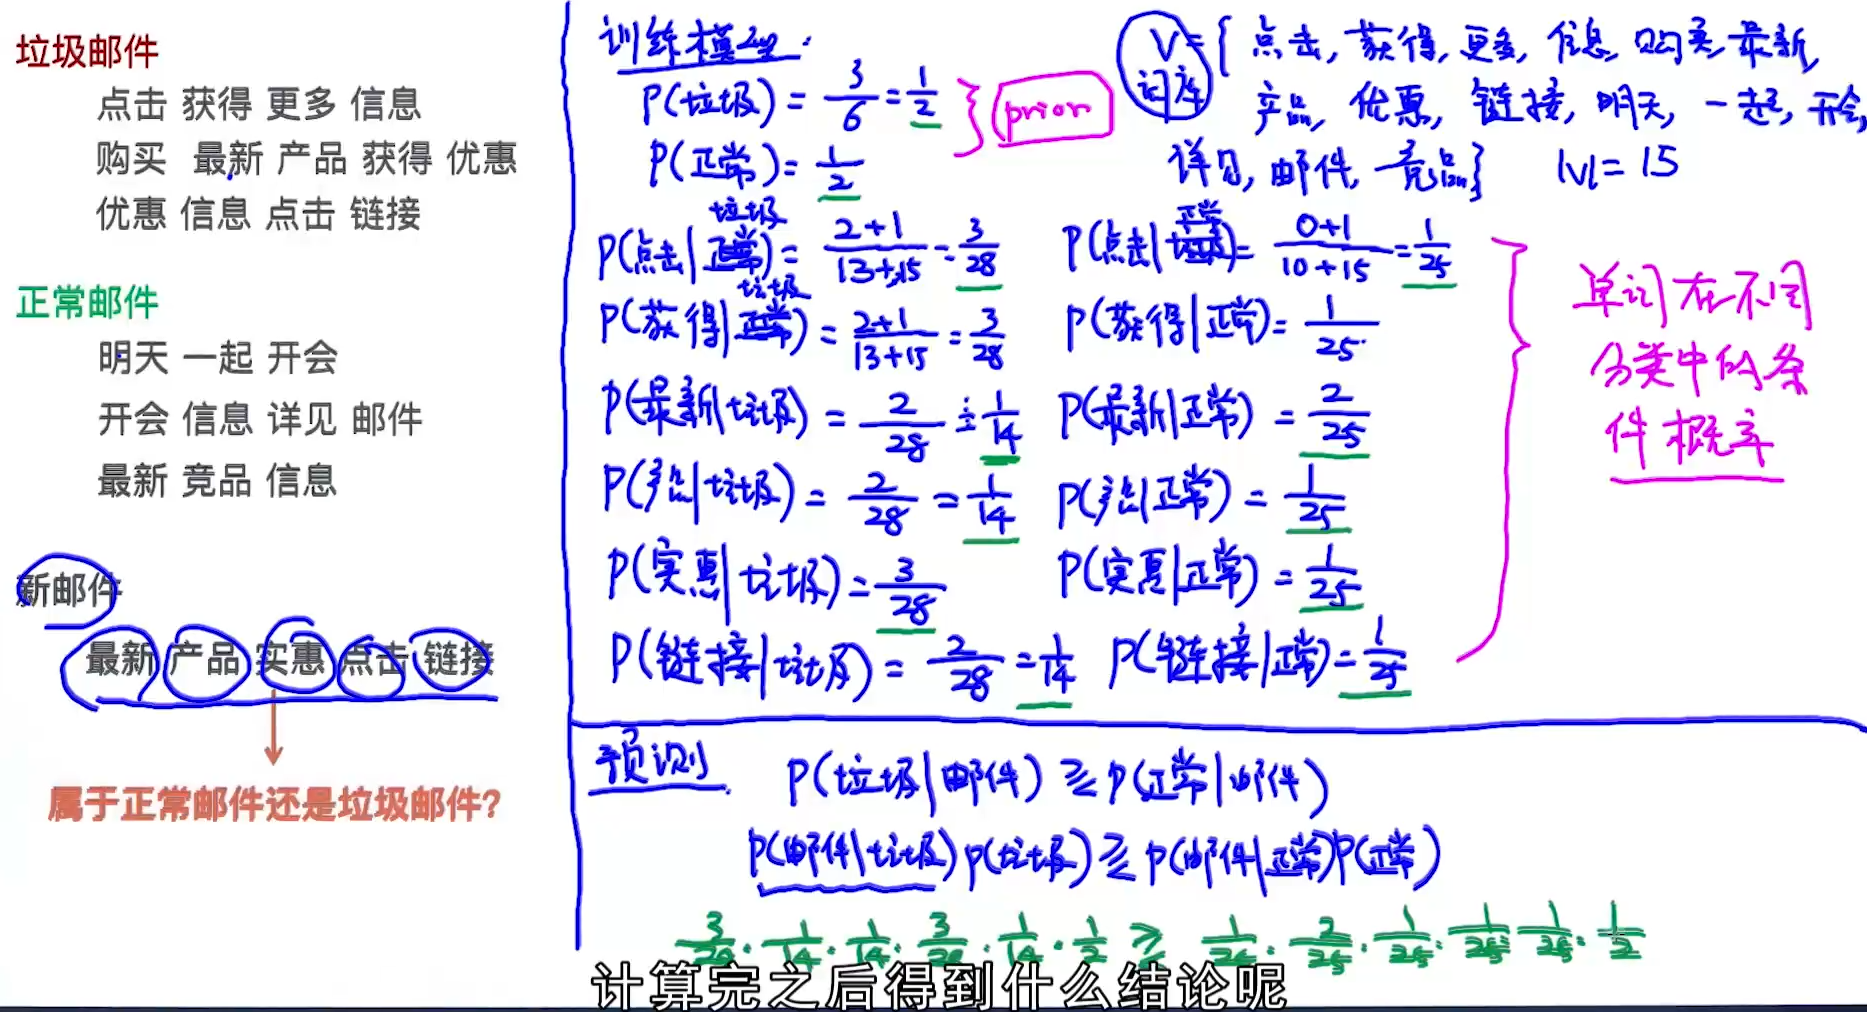 垃圾邮件
点击 获得 更多 信息
购买 最新 产品 获得 优惠
优惠 信息 点击 链接
正常邮件
明天 一起 开会
开会 信息 详见 邮件
最新 竞品 信息
新邮件
最新 产品 实惠 点击 链接
属于正常邮件还是垃圾邮件?
训练模型:
P(垃圾) = 3/6 = 1/2
P(正常) = 1/2
prior
V = { 点击, 获得, 更多, 信息, 购买, 最新,
词库
产品, 优惠, 链接, 明天, 一起, 开会,
详见, 邮件, 竞品} |V| = 15
P(点击|垃圾) = 2+1/13+15 = 3/28 P(点击|正常) = 0+1/10+15 = 1/25
P(获得|垃圾) = 2+1/13+15 = 3/28 P(获得|正常) = 1/25
P(最新|垃圾) = 2/28 = 1/14 P(最新|正常) = 2/25
P(产品|垃圾) = 2/28 = 1/14 P(产品|正常) = 1/25
P(实惠|垃圾) = 3/28 P(实惠|正常) = 1/25
P(链接|垃圾) = 2/28 = 1/14 P(链接|正常) = 1/25
单词在不同
分类中的条
件概率
预测
P(垃圾|邮件) ≥ P(正常|邮件)
P(邮件|垃圾) P(垃圾) ≥ P(邮件|正常)P(正常)
3/28 · 1/14 · 1/14 · 3/28 · 1/14 · 1/2 ≥ 1/25 · 2/25 · 1/25 · 1/25 1/25 · 1/2
计算完之后得到什么结论呢